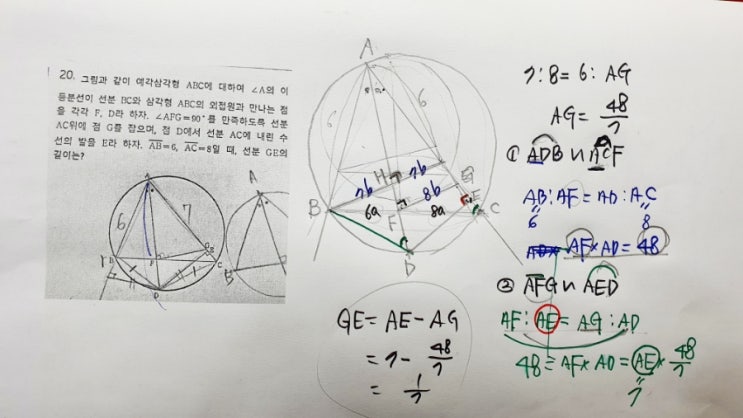 20. 그림과 같이 예각삼각형 ABC에 대하여 ∠A의 이
등분선이 선분 BC와 삼각형 ABC의 외접원과 만나는 점
을 각각 F, D라 하자. ∠AFG=90°를 만족하도록 선분
AC위에 점 G를 잡으며, 점 D에서 선분 AC에 내린 수
선의 발을 E라 하자. AB=6, AC=8일 때, 선분 GE의
길이는?
A
6
7
B
C
D
A
B
A
6
6
H
7b
7b
8b
6a
8a
F
E
B
C
D
7:8=6:AG
AG=48/7
① ADB ∽ ACF
AB:AF=AD:AC
6
8
AF×AD=48
② AFG ∽ AED
AF:AE=AG:AD
48=AF×AD=AE×48/7
7
GE=AE-AG
=7-48/7
=1/7